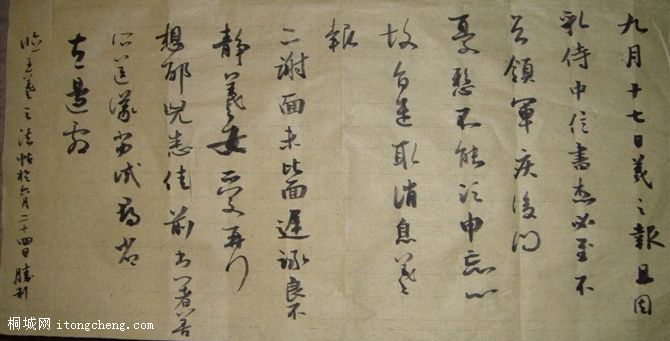 九月十七日羲之報且因
孔侍中信書想必至不
知領軍疾後問
憂懸不能須臾忘心
故旨遣取消息羲之
報
二謝面未比面遲詠良不
靜羲之女愛再拜
想邵兒悉佳前患者善
所送議當試尋省
左邊劇
臨王羲之法帖於六月二十四日勝利
桐城网 itongcheng.com